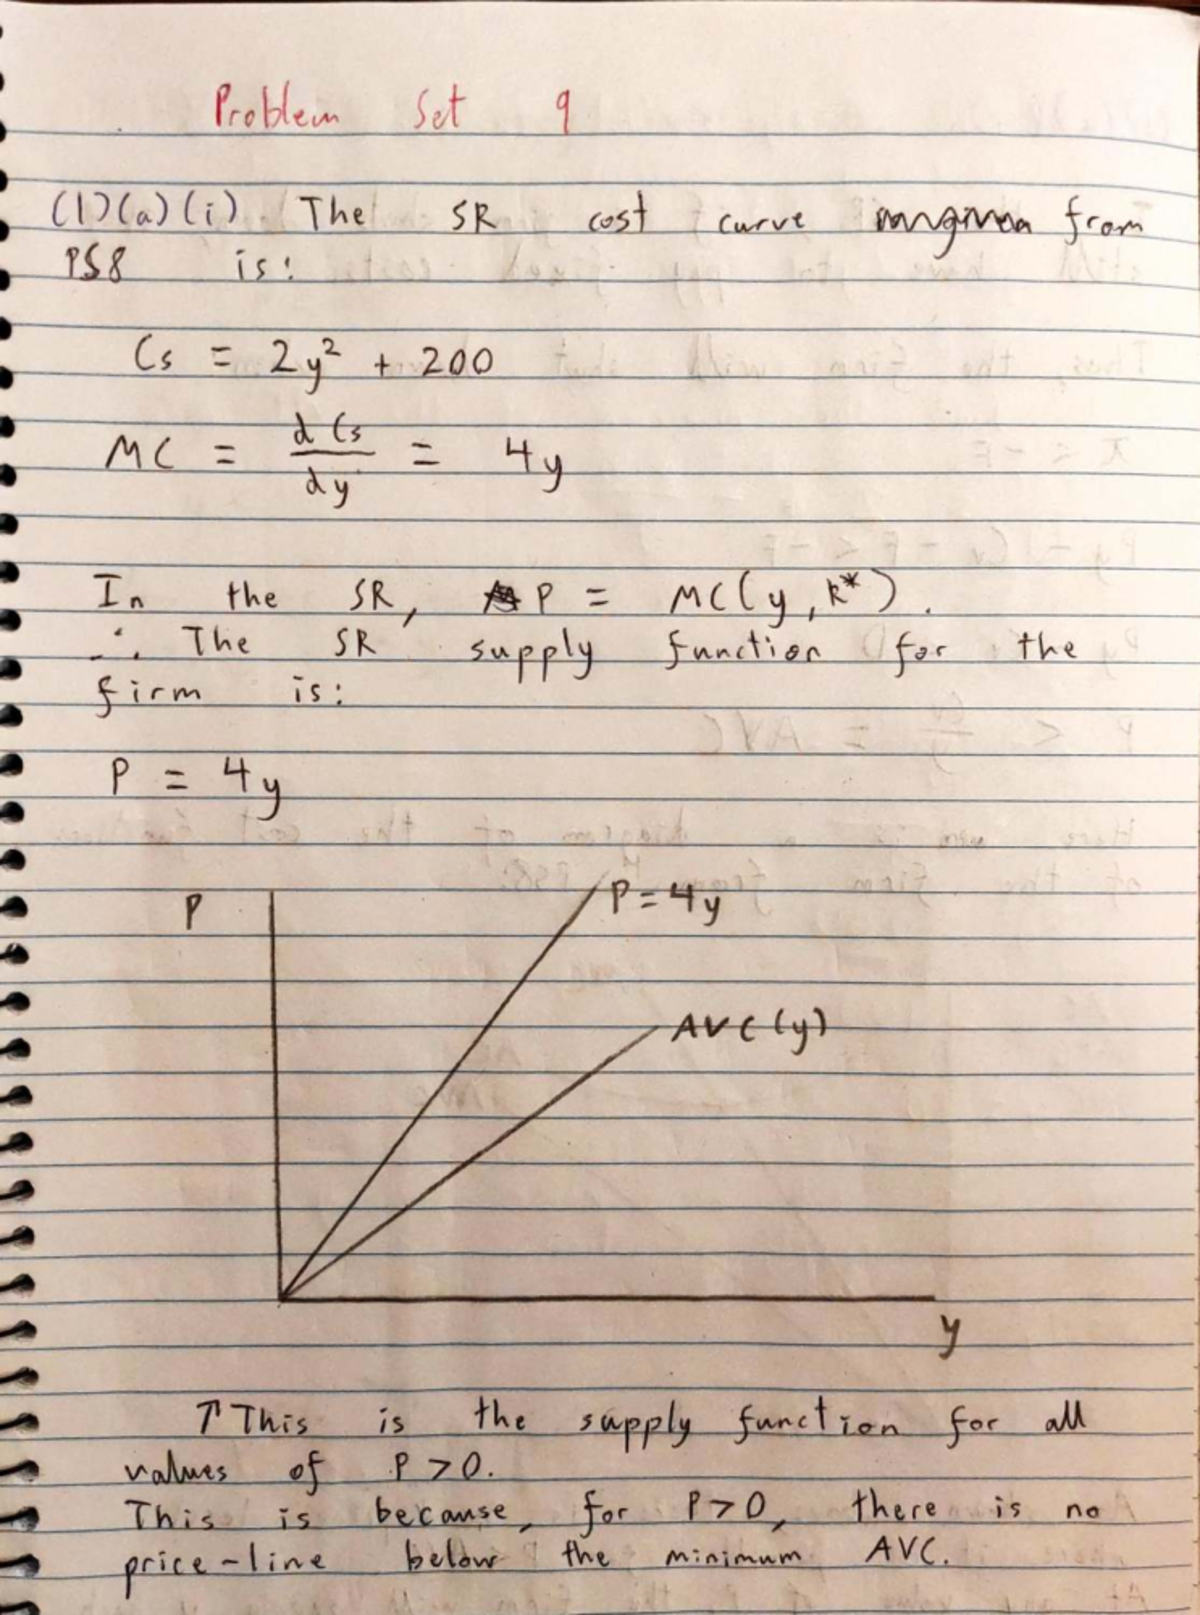 Problem Set 9
(1)(a)(i) The SR cost curve from
PS8 is:
Cs = 2y² + 200
MC = dCs/dy = 4y
In the SR, P = MC(y, k*).
∴ The SR supply function for the
firm is:
P = 4y
P
P = 4y
AVC(y)
y
↑ This is the supply function for all
values of P > 0.
This is because, for P > 0, there is no
price-line below the minimum AVC.